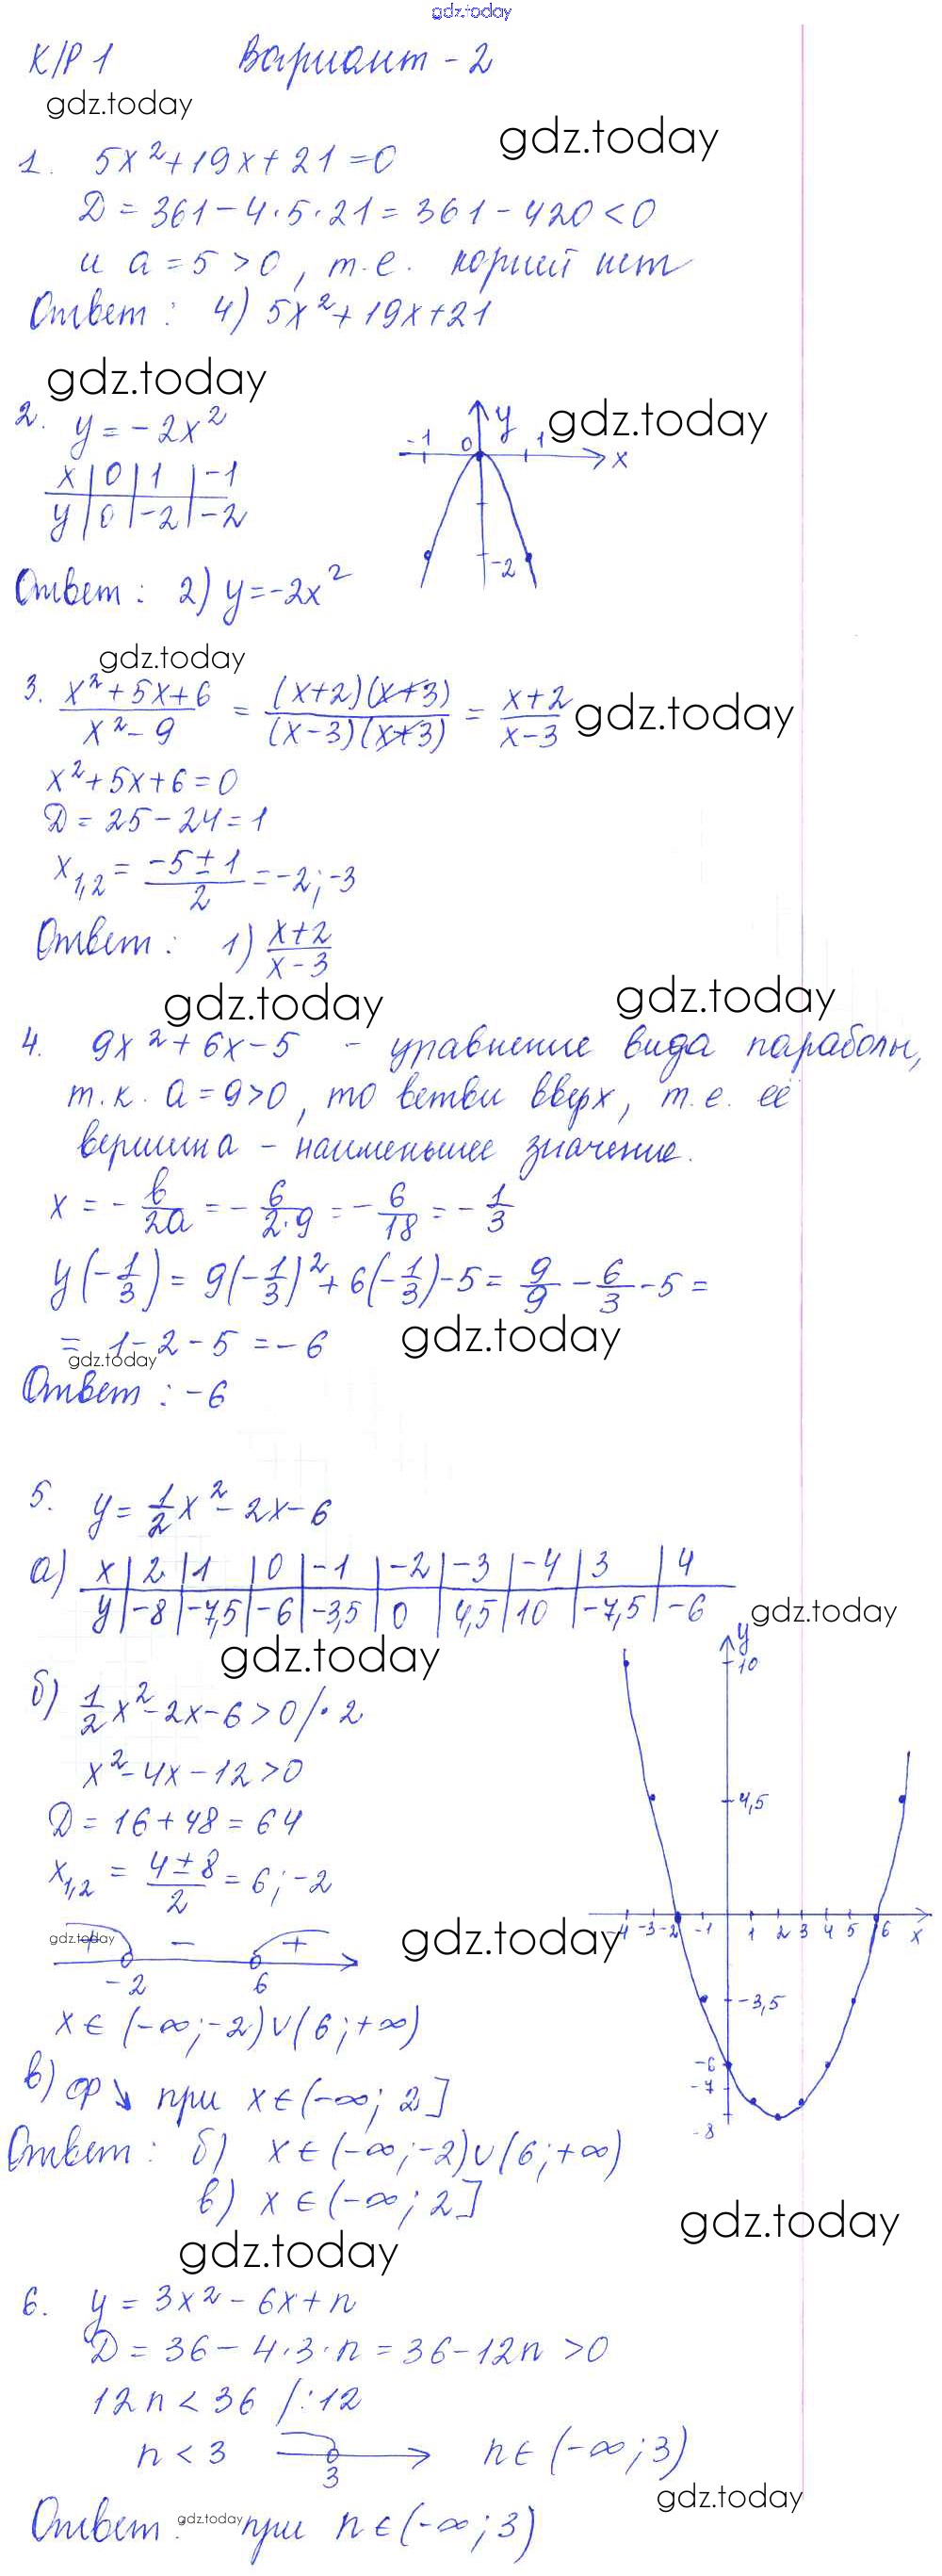 gdz.today
К/Р 1 Вариант - 2
gdz.today
gdz.today
1. 5x²+19x+21=0
D = 361-4·5·21=361-420<0
и a=5>0, т.е. корней нет
Ответ: 4) 5x²+19x+21
gdz.today
gdz.today
2. y=-2x²
x | 0 | 1 | -1
y | 0 | -2 | -2
y
-1 0 1 x
-2
Ответ: 2) y=-2x²
gdz.today
3. (x²+5x+6)/(x²-9) = ((x+2)(x+3))/((x-3)(x+3)) = (x+2)/(x-3)
gdz.today
x²+5x+6=0
D=25-24=1
x₁,₂ = (-5±1)/2 = -2; -3
Ответ: 1) (x+2)/(x-3)
gdz.today
gdz.today
4. 9x²+6x-5 - уравнение вида параболы,
т.к. a=9>0, то ветви вверх, т.е. её
вершина - наименьшее значение.
x = -в/2a = -6/(2·9) = -6/18 = -1/3
y(-1/3) = 9(-1/3)²+6(-1/3)-5 = 9/9 - 6/3 - 5 =
= 1-2-5 = -6
gdz.today
gdz.today
Ответ: -6
5. y=½x²-2x-6
а) x | 2 | 1 | 0 | -1 | -2 | -3 | -4 | 3 | 4
y | -8 | -7,5 | -6 | -3,5 | 0 | 4,5 | 10 | -7,5 | -6
gdz.today
gdz.today
y
10
4,5
-4 -3 -2 -1 1 2 3 4 5 6 x
-3,5
-6
-7
-8
б) ½x²-2x-6>0 /·2
x²-4x-12>0
D=16+48=64
x₁,₂ = (4±8)/2 = 6; -2
gdz.today
gdz.today
+ - +
-2 6
x∈(-∞;-2)∪(6;+∞)
в) ф ↘ при x∈(-∞; 2]
Ответ: б) x∈(-∞;-2)∪(6;+∞)
в) x∈(-∞; 2]
gdz.today
gdz.today
6. y = 3x²-6x+n
D = 36-4·3·n = 36-12n >0
12n<36 /:12
n<3 3 n∈(-∞;3)
gdz.today
Ответ: при n∈(-∞;3)
gdz.today